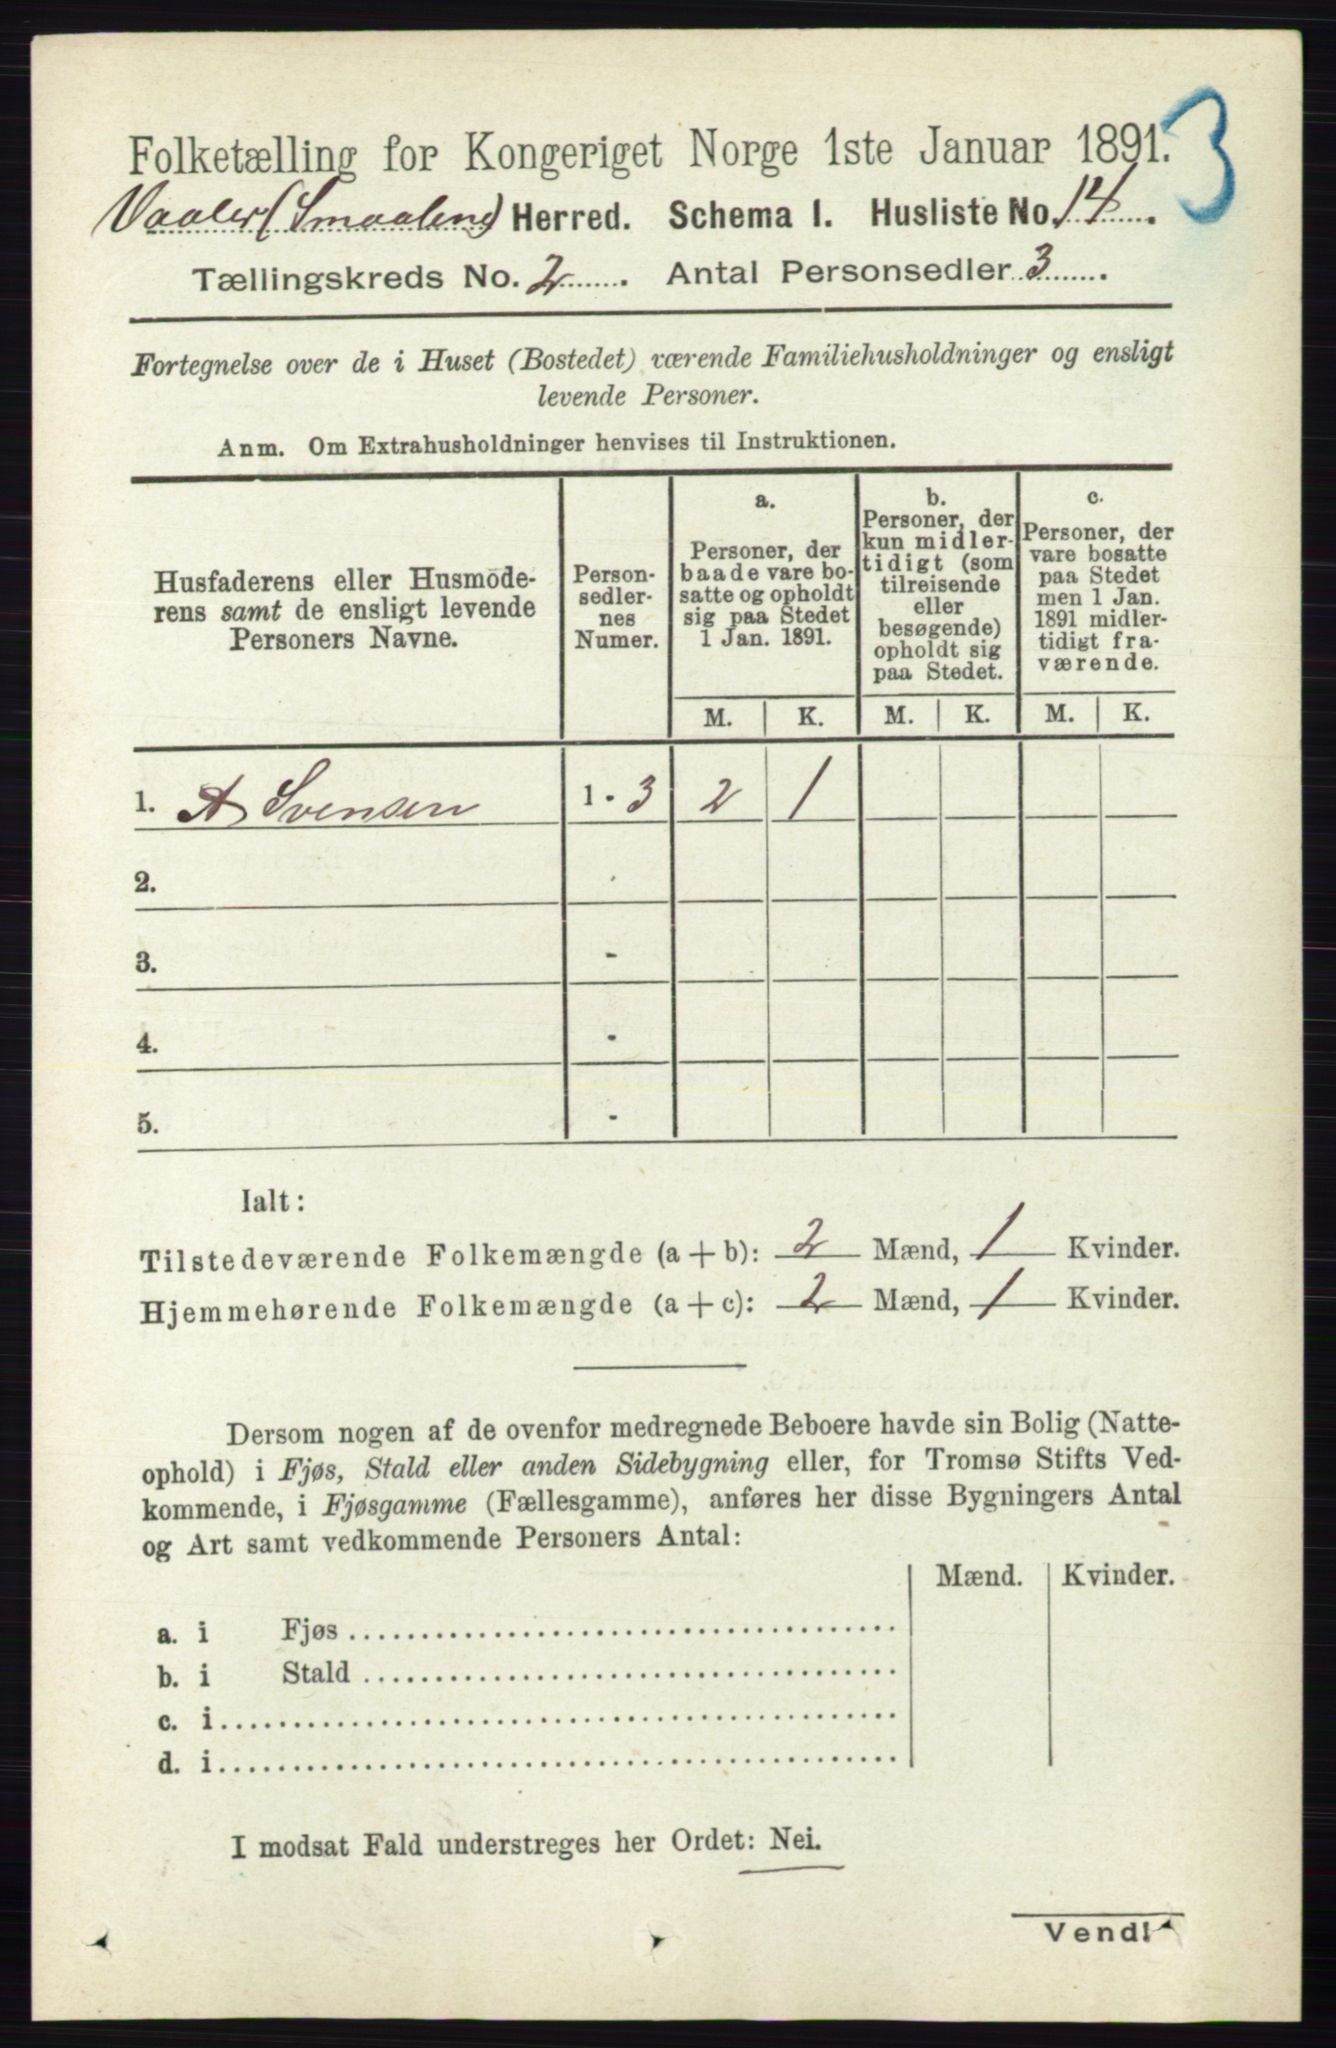 3
Folketælling for Kongeriget Norge 1ste Januar 1891.
Vaaler (Smaalene) Herred. Schema I. Husliste No. 14.
Tællingskreds No. 2. Antal Personsedler 3.
Fortegnelse over de i Huset (Bostedet) værende Familiehusholdninger og ensligt
levende Personer.
Anm. Om Extrahusholdninger henvises til Instruktionen.
Husfaderens eller Husmode-
rens samt de ensligt levende
Personers Navne.
Person-
sedler-
nes
Numer.
a.
Personer, der
baade vare bo-
satte og opholdt
sig paa Stedet
1 Jan. 1891.
b.
Personer, der
kun midler-
tidigt (som
tilreisende
eller
besøgende)
opholdt sig
paa Stedet.
c.
Personer, der
vare bosatte
paa Stedet
men 1 Jan.
1891 midler-
tidigt fra-
værende.
M. K. M. K. M. K.
1. A Svensen 1 - 3 2 1
2. -
3. -
4. -
5. -
Ialt:
Tilstedeværende Folkemængde (a + b): 2 Mænd, 1 Kvinder.
Hjemmehørende Folkemængde (a + c): 2 Mænd, 1 Kvinder.
Dersom nogen af de ovenfor medregnede Beboere havde sin Bolig (Natte-
ophold) i Fjøs, Stald eller anden Sidebygning eller, for Tromsø Stifts Ved-
kommende, i Fjøsgamme (Fællesgamme), anføres her disse Bygningers Antal
og Art samt vedkommende Personers Antal:
Mænd. Kvinder.
a. i Fjøs
b. i Stald
c. i
d. i
I modsat Fald understreges her Ordet: Nei.
Vend!